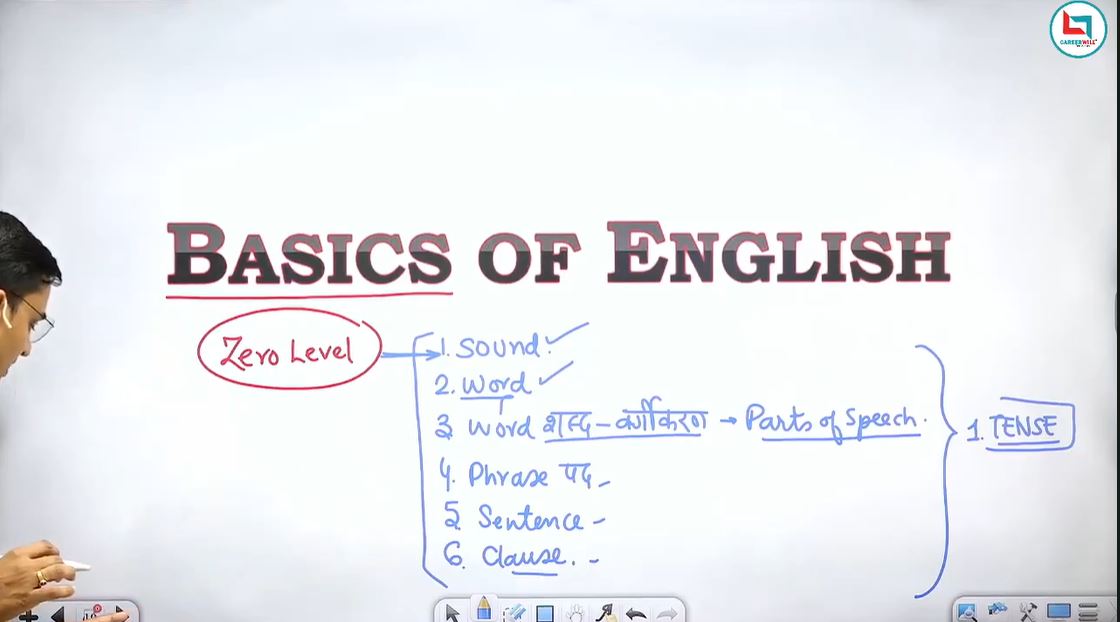 CAREERWILL
BASICS OF ENGLISH
Zero Level
1. Sound.
2. Word
3 Word शब्द - वर्गीकरण → Parts of speech.
1. TENSE
4. Phrase पद -
5. Sentence -
6. Clause. -